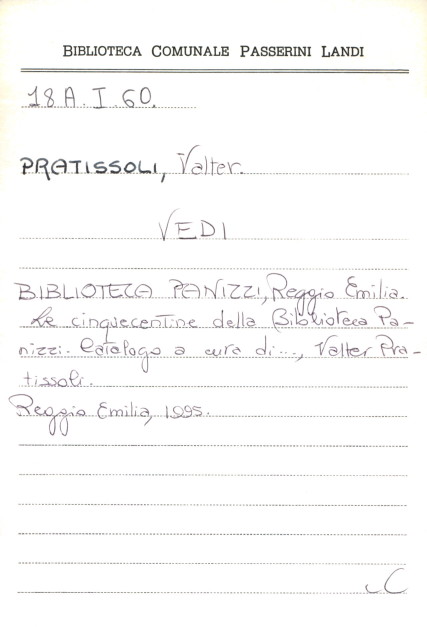 BIBLIOTECA COMUNALE PASSERINI LANDI
18 A. I. 60.
PRATISSOLI, Valter.
VEDI
BIBLIOTECA PANIZZI, Reggio Emilia.
Le cinquecentine della Biblioteca Pa-
nizzi. Catalogo a cura di..., Valter Pra-
tissoli.
Reggio Emilia, 1995.